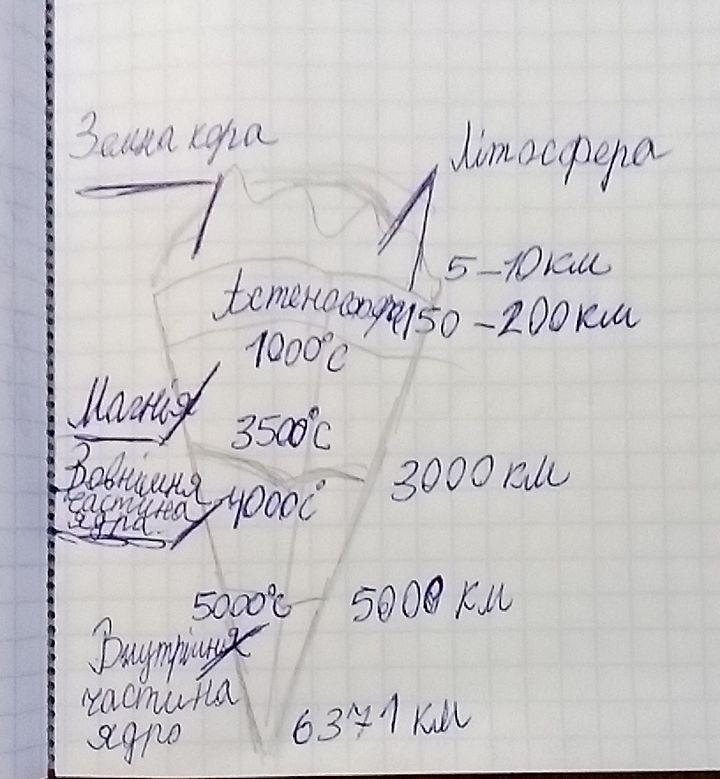 Земна кора
Літосфера
5-10 км
Астеносфера 150-200 км
1000°C
Магнія
3500°C
3000 км
Зовнішня
частина
ядра
4000C°
5000°C
5000 км
Внутрішня
частина
ядро
6371 км